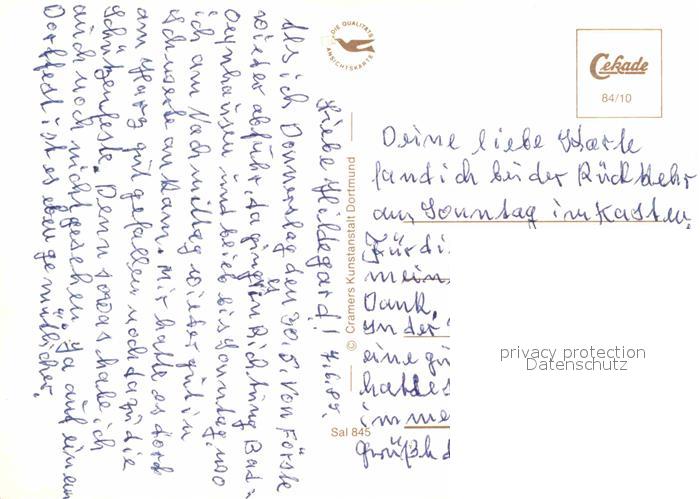 Liebe Hildegard! 4.6.85.
Als ich Donnerstag den 30.5. von Förste
wieder abfuhr, da ging es in Richtung Bad-
Oeynhausen und blieb bis Sonntag, wo
ich am Nachmittag wieder gut in
Schwerte ankam. Mir hatte es dort
am Harz gut gefallen noch dazu die
Schützenfeste. Denn sowas habe ich
auch noch nicht gesehen. Ja auf einem
Dorffest ist es eben gemütlicher.
Deine liebe Karte
fand ich bei der Rückkehr
am Sonntag im Kasten.
Für di
mein
Dank.
In der
eine gü
hattes
im me
grüßt d
DIE QUALITÄTS
ANSICHTSKARTE
Cekade
84/10
© Cramers Kunstanstalt Dortmund
Sal 845
privacy protection
Datenschutz